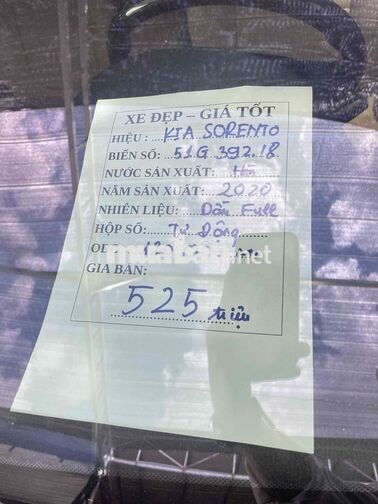 XE ĐẸP – GIÁ TỐT
HIỆU : KIA SORENTO
BIỂN SỐ: 51G 392.18
NƯỚC SẢN XUẤT: Hàn
NĂM SẢN XUẤT: 2020
NHIÊN LIỆU: Dầu Full
HỘP SỐ: Tự Động
muaban.net
GIÁ BÁN:
525 triệu